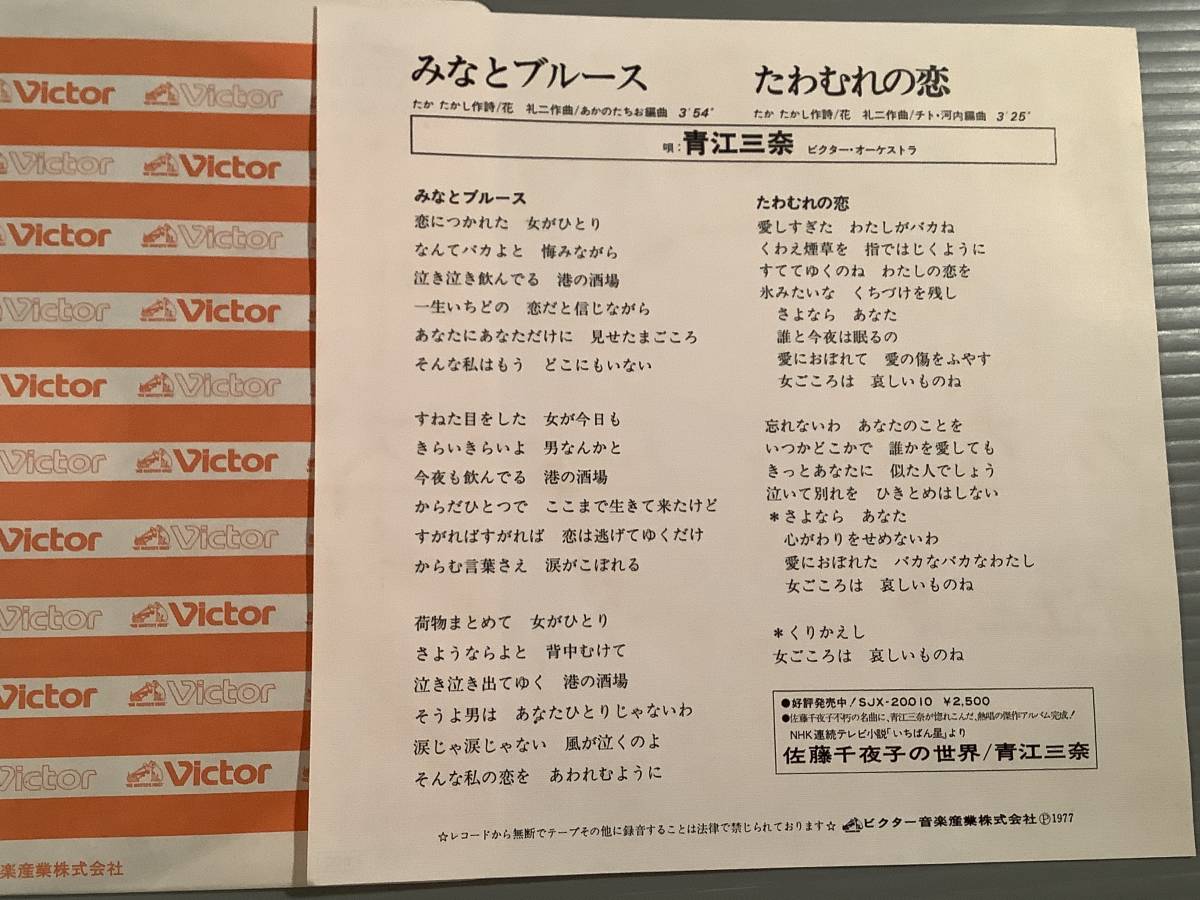 みなとブルース
たか たかし作詩/花 礼二作曲/あかのたちお編曲 3′54″
たわむれの恋
たか たかし作詩/花 礼二作曲/チト・河内編曲 3′25″
唄:青江三奈 ビクター・オーケストラ
みなとブルース
恋につかれた 女がひとり
なんてバカよと 悔みながら
泣き泣き飲んでる 港の酒場
一生いちどの 恋だと信じながら
あなたにあなただけに 見せたまごころ
そんな私はもう どこにもいない
すねた目をした 女が今日も
きらいきらいよ 男なんかと
今夜も飲んでる 港の酒場
からだひとつで ここまで生きて来たけど
すがればすがれば 恋は逃げてゆくだけ
からむ言葉さえ 涙がこぼれる
荷物まとめて 女がひとり
さようならよと 背中むけて
泣き泣き出てゆく 港の酒場
そうよ男は あなたひとりじゃないわ
涙じゃ涙じゃない 風が泣くのよ
そんな私の恋を あわれむように
たわむれの恋
愛しすぎた わたしがバカね
くわえ煙草を 指ではじくように
すててゆくのね わたしの恋を
氷みたいな くちづけを残し
さよなら あなた
誰と今夜は眠るの
愛におぼれて 愛の傷をふやす
女ごころは 哀しいものね
忘れないわ あなたのことを
いつかどこかで 誰かを愛しても
きっとあなたに 似た人でしょう
泣いて別れを ひきとめはしない
*さよなら あなた
心がわりをせめないわ
愛におぼれた バカなバカなわたし
女ごころは 哀しいものね
*くりかえし
女ごころは 哀しいものね
●好評発売中!SJX-20010 ¥2,500
●佐藤千夜子不朽の名曲に、青江三奈が惚れこんだ、熱唱の傑作アルバム完成!
NHK連続テレビ小説「いちばん星」より
佐藤千夜子の世界/青江三奈
☆レコードから無断でテープその他に録音することは法律で禁じられております☆ ビクター音楽産業株式会社Ⓟ1977
Victor Victor
Victor Victor
Victor Victor
Victor Victor
Victor Victor
Victor Victor
Victor Victor
Victor Victor
Victor Victor
Victor Victor
楽産業株式会社